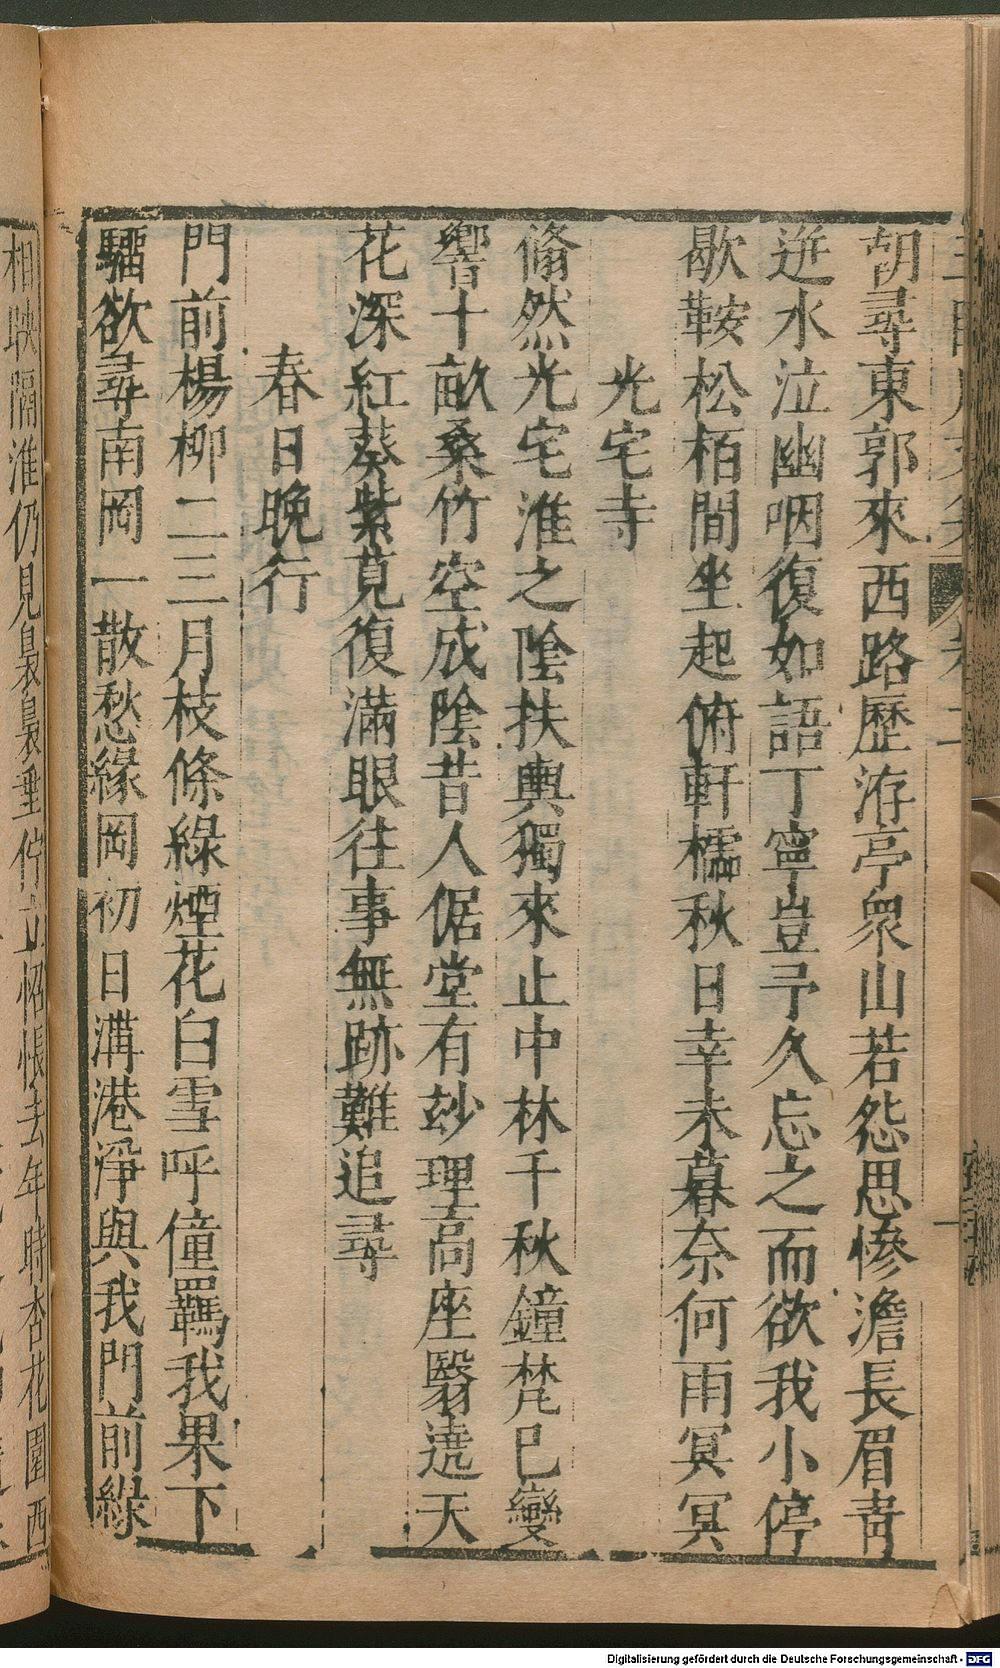 胡尋東郭來西路歷洊亭衆山若怨思慘澹長眉青
迸水泣幽咽復如語丁寧豈予久忘之而欲我小停
歇鞍松栢間坐起俯軒櫺秋日幸未暮奈何雨冥冥
光宅寺
翛然光宅淮之陰扶輿獨來止中林千秋鐘梵已變
響十畝桑竹空成陰昔人倨堂有妙理高座翳遶天
花深紅葵紫莧復滿眼往事無跡難追尋
春日晚行
門前楊柳二三月枝條綠煙花白雪呼僮羈我果下
驑欲尋南岡一散愁緣岡初日溝港淨與我門前綠
相映隔淮仍見裊裊垂佇立怊悵去年時杏花園西
Digitalisierung gefördert durch die Deutsche Forschungsgemeinschaft - DFG